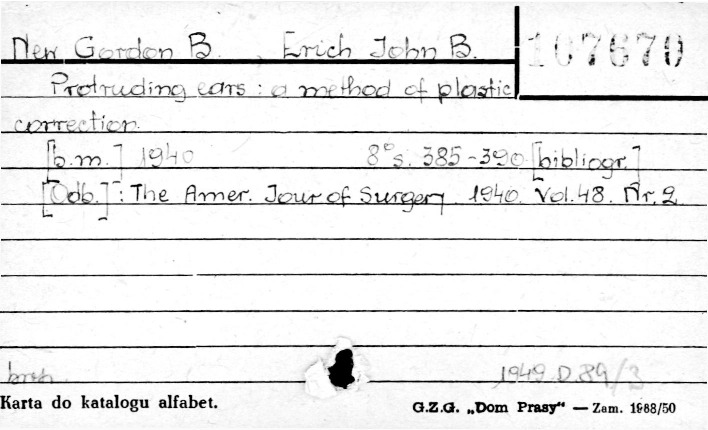 New Gordon B. , Erich John B.
107670
Protruding ears : a method of plastic
correction.
[b.m.] 1940 8° s. 385-390 [bibliogr.]
[Odb.] : The Amer. Jour of Surgery 1940. Vol. 48. Nr. 2
brosh. 1949 D 89/3
Karta do katalogu alfabet. G.Z.G. „Dom Prasy" — Zam. 1988/50